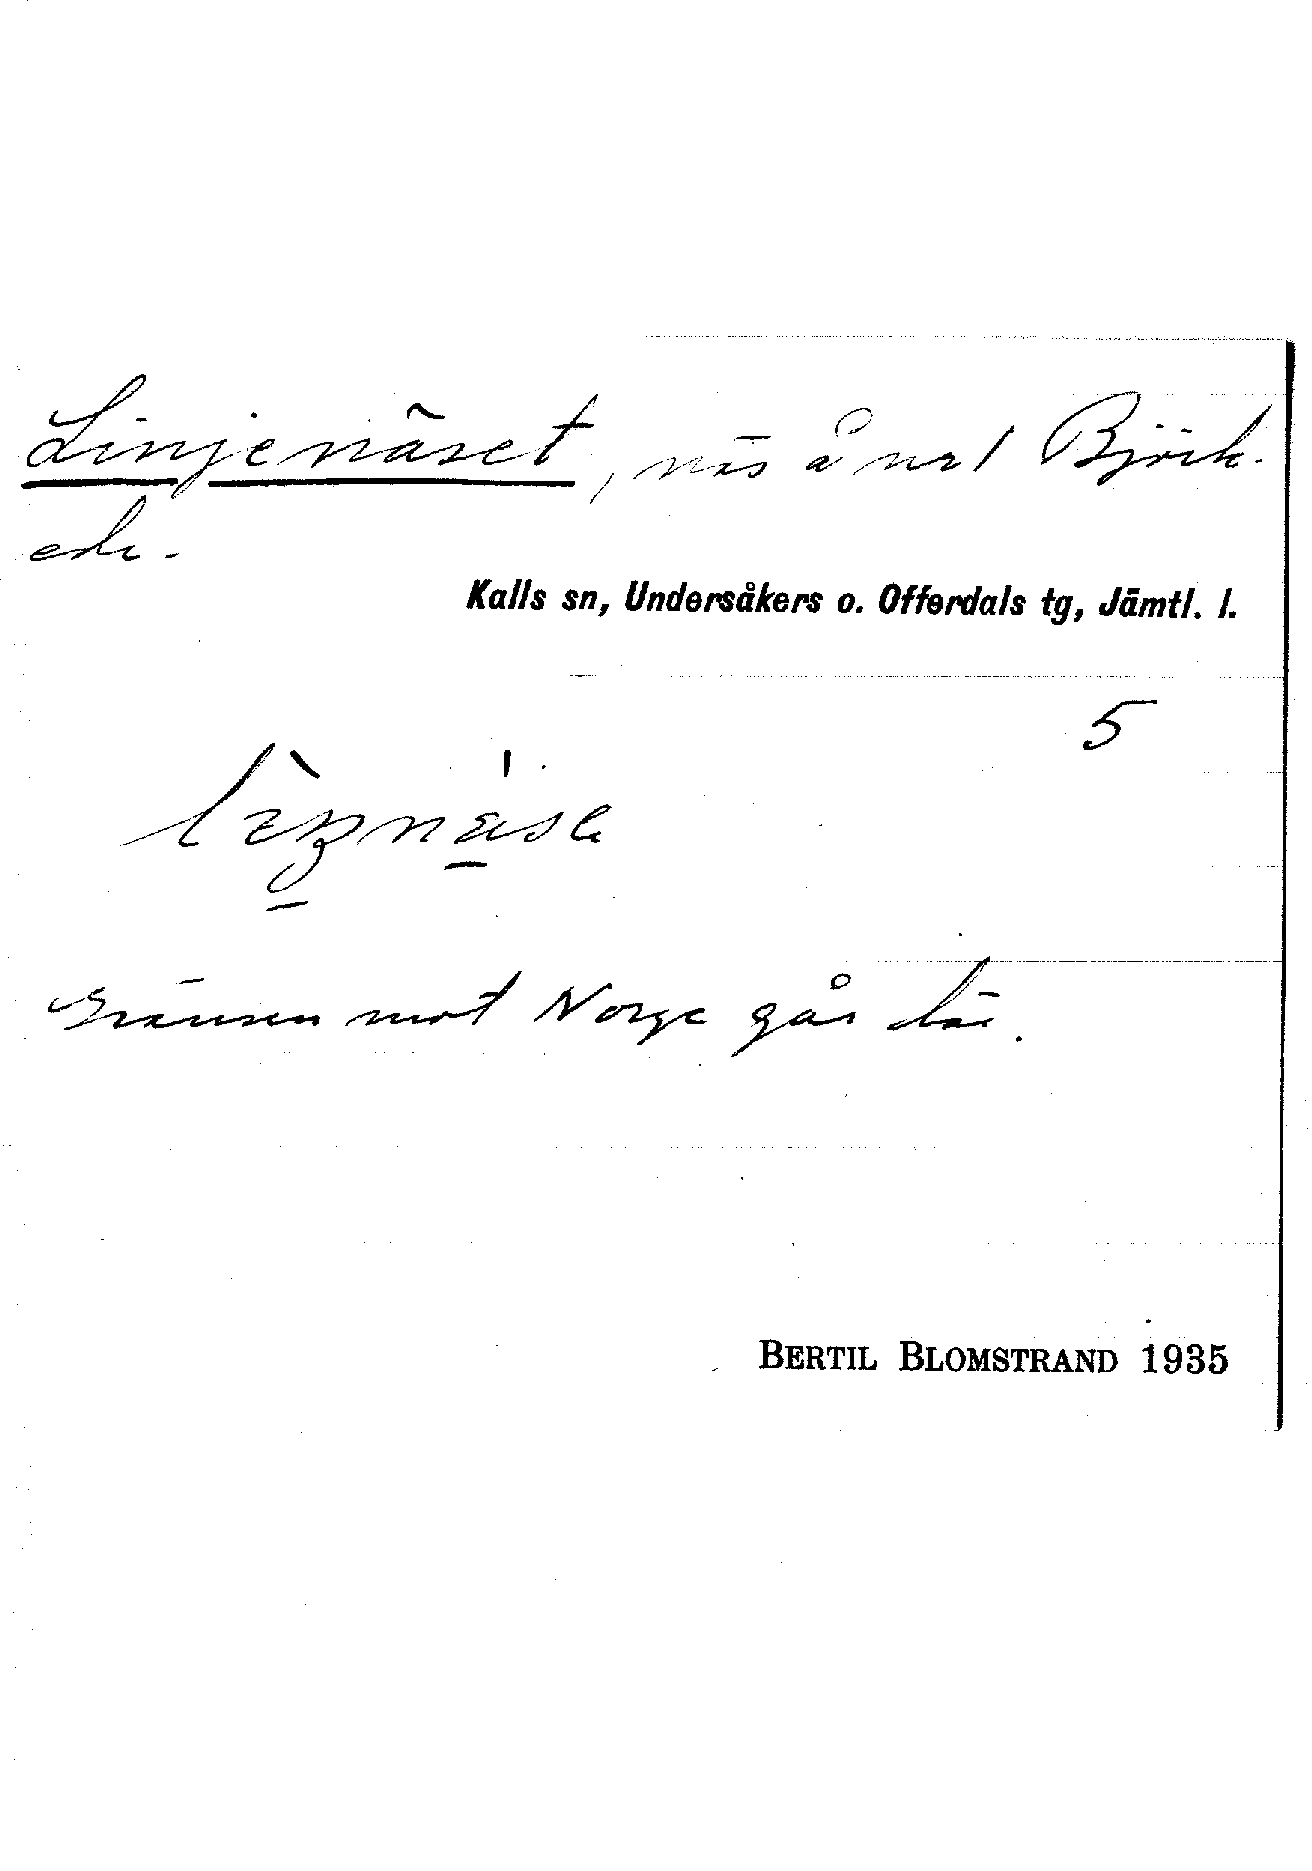 Linjenäset, näs å nr 1 Björk-
ede.
Kalls sn, Undersåkers o. Offerdals tg, Jämtl. l.
5
Gränsen mot Norge går där.
BERTIL BLOMSTRAND 1935